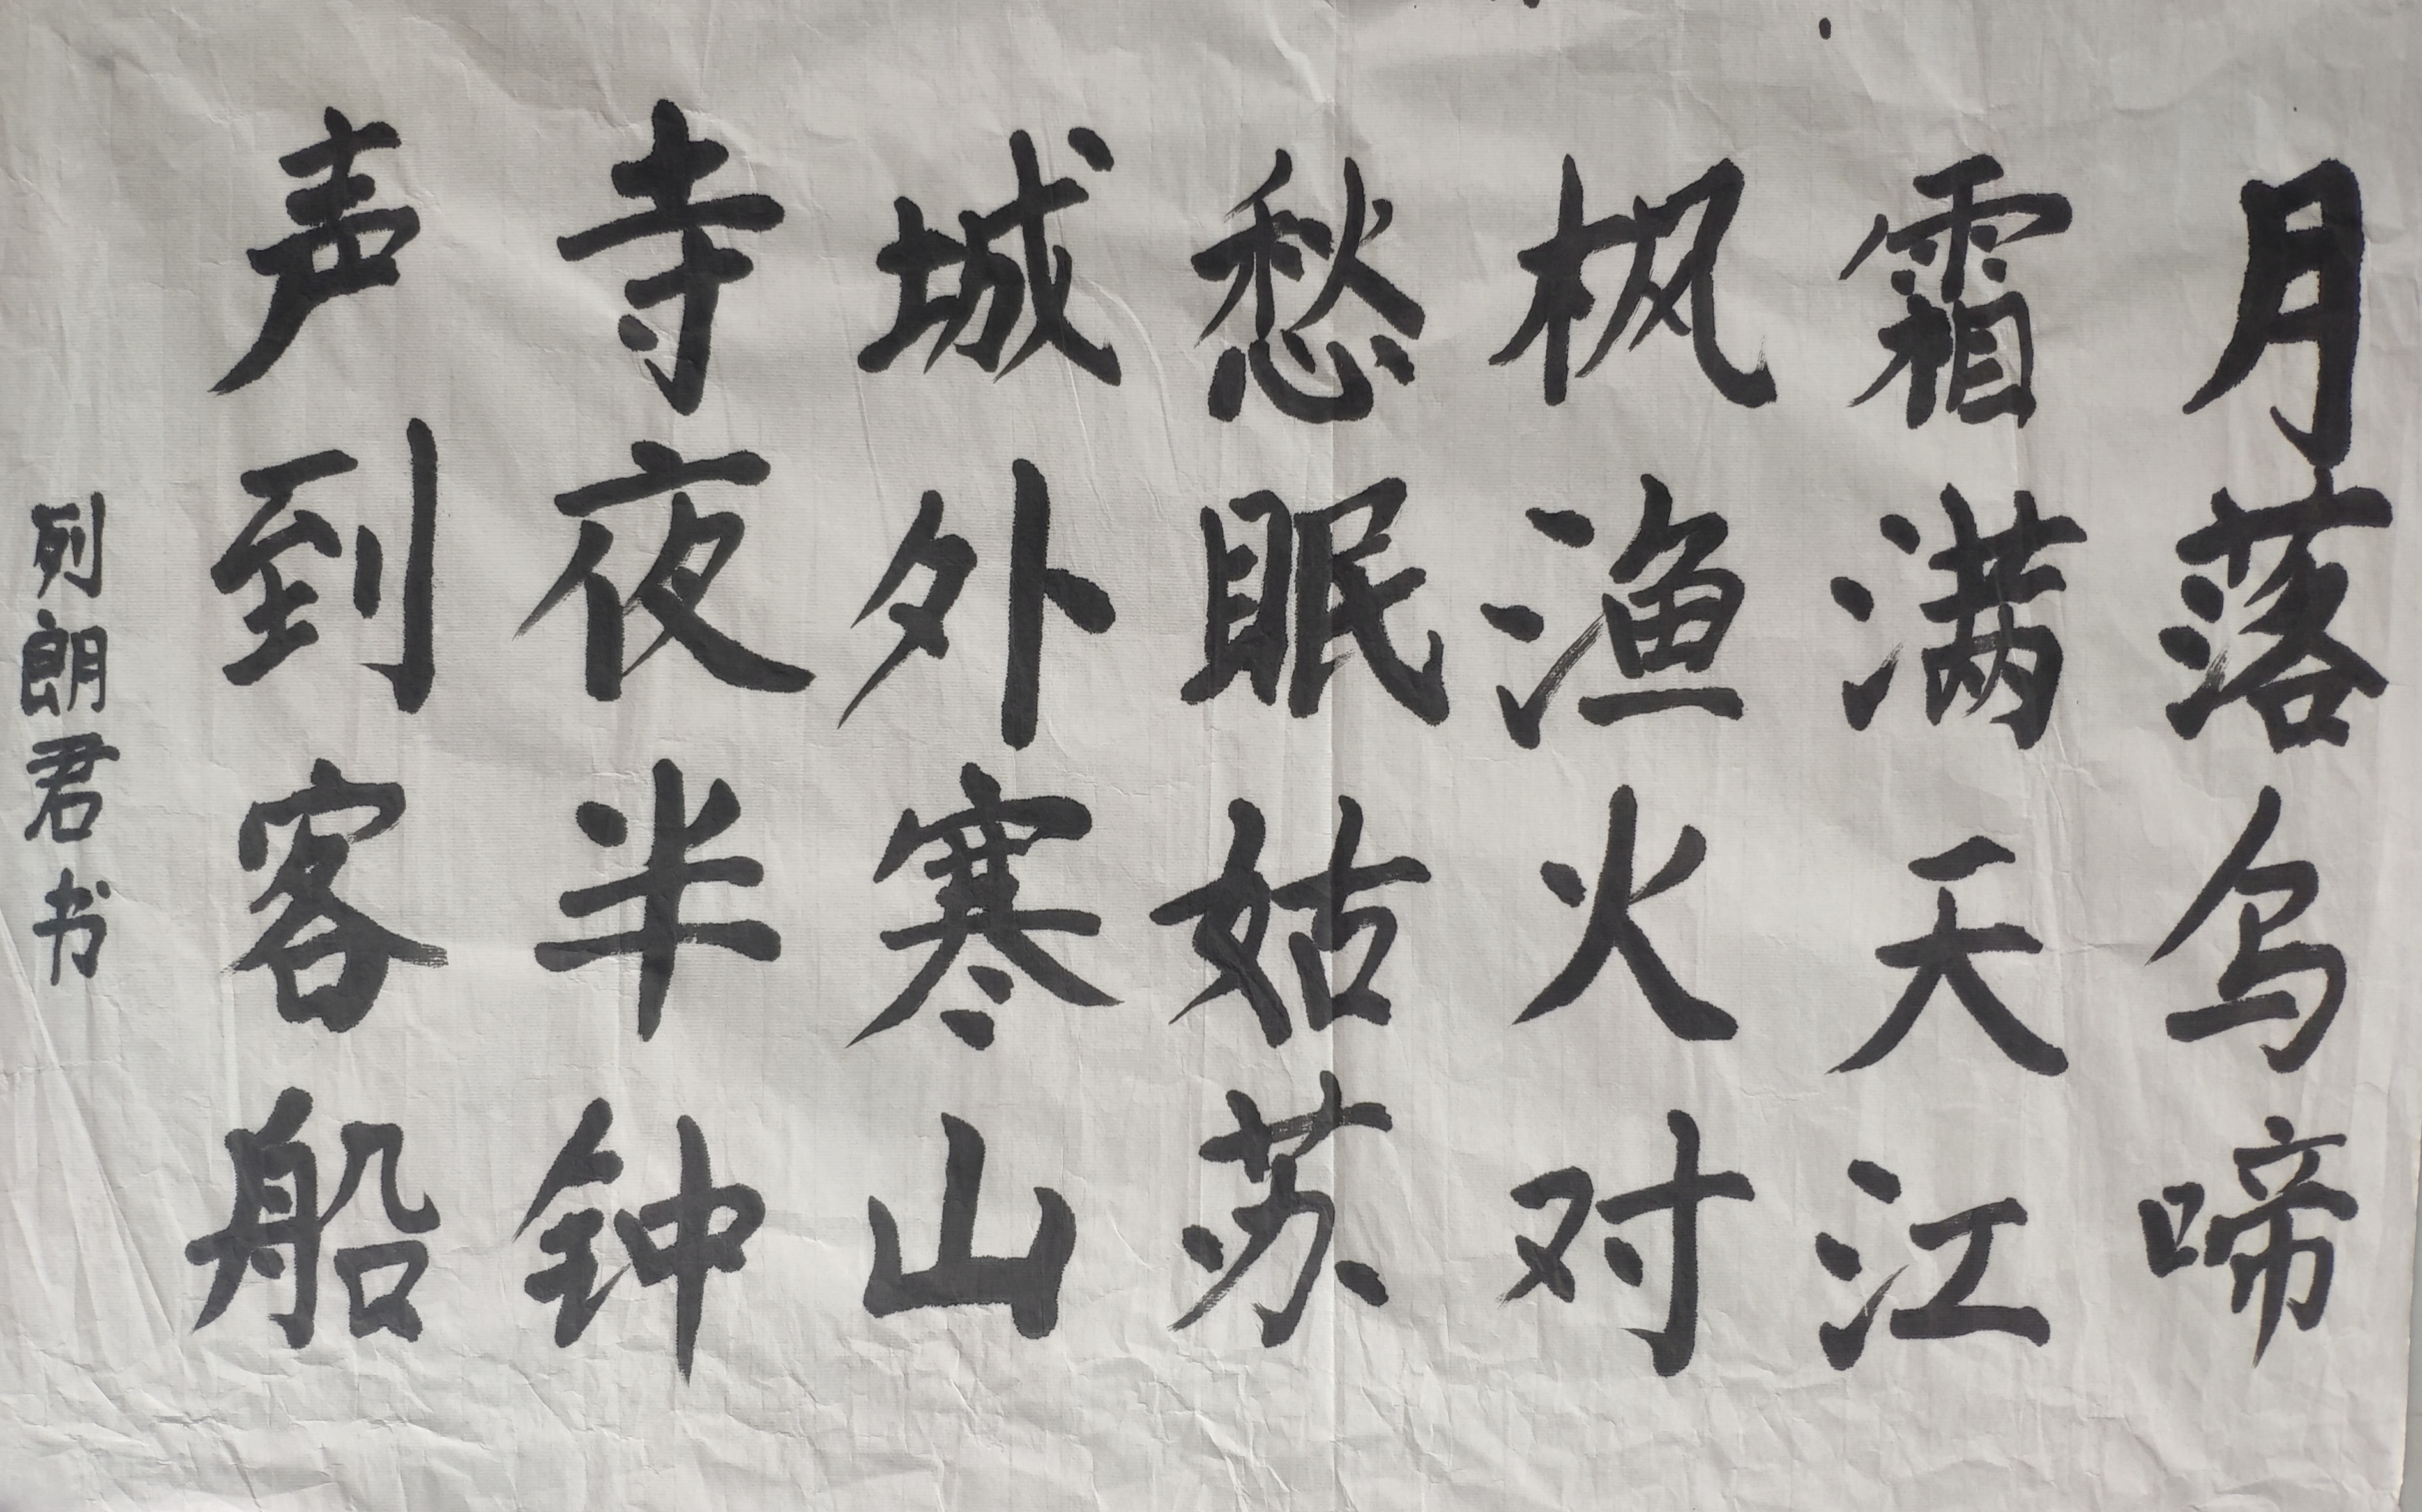 月落乌啼
霜满天江
枫渔火对
愁眠姑苏
城外寒山
寺夜半钟
声到客船
列朗君书